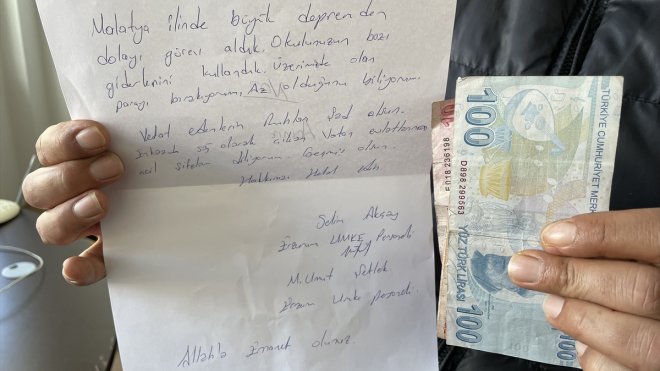 Malatya ilinde büyük depremden
dolayı görev aldık. Okulunuzun bazı
giderlerini kullandık. Üzerimizde olan
parayı bırakıyorum. Az olduğunu biliyorum.
Vefat edenlerin Ruhları Şad olsun.
Enkazda sağ olarak çıkan Vatan evlatlarına
acil şifalar diliyorum. Geçmiş olsun.
Hakkınızı Helal edin
Selim Akçay
Erzurum UMKE Personeli
M. Umut
Erzurum Umke personeli.
Allah'a Emanet olunuz.
100
TÜRKİYE CUMHURİYET MERK
D898 299563
E018 236198
YÜZ TÜRK LİRASI
100
100